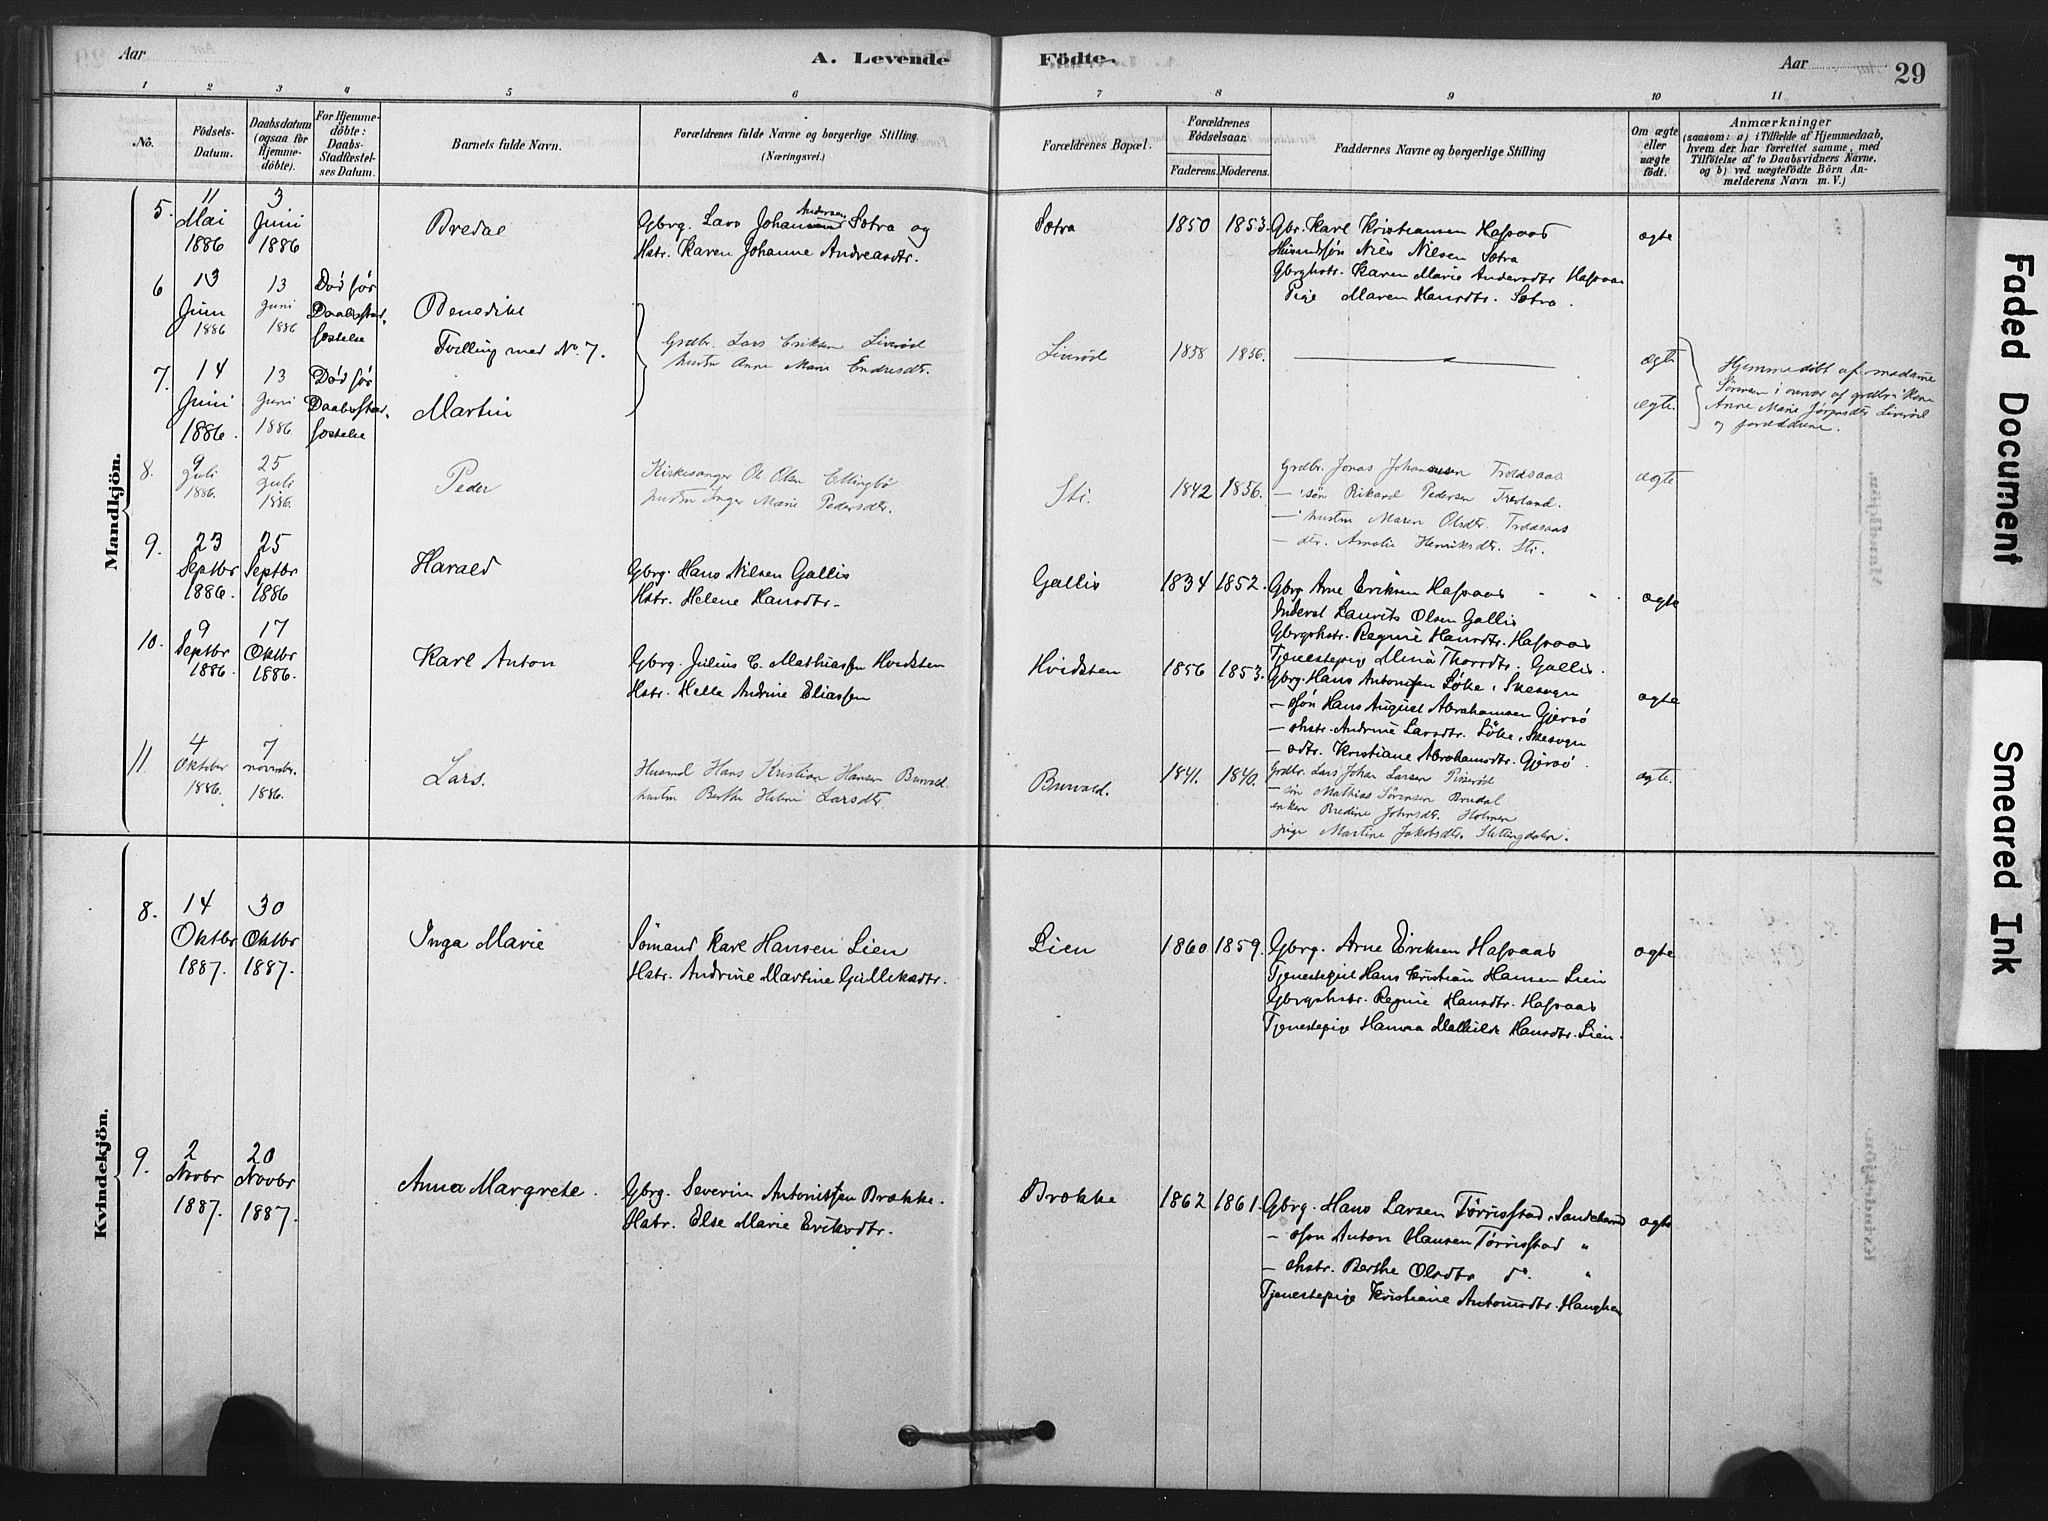 Aar
A. Levende
Födte.
Aar
29
1 2 3 4 5 6 7 8 9 10 11
No.
Födsels-
Datum.
Daabsdatum
(ogsaa for
Hjemme-
döbte).
For Hjemme-
döbte:
Daabs-
Stadfæstel-
ses Datum.
Barnets fulde Navn.
Forældrenes fulde Navne og borgerlige Stilling.
(Næringsvei.)
Forældrenes Bopæl.
Forældrenes
Födselsaar.
Faderens. Moderens.
Faddernes Navne og borgerlige Stilling
Om ægte
eller
uægte
födt.
Anmærkninger
(saasom: a) i Tilfælde af Hjemmedaab,
hvem der har forrettet samme, med
Tilföielse af to Daabsvidners Navne,
og b) ved uægtefödte Börn An-
melderens Navn m. V.)
Mandkjön.
5. 11 Mai 1886
3 Juni 1886
Bredal
Gbrg. Lars Johan Andersen Sætra og
Hstr. Karen Johanne Andreasdtr.
Sætra
1850 1853.
Gbr. Karl Kristiansen Hafsaas
Husmdsøn Niels Nilsen Sætra
Gbrghstr. Karen Marie Andersdtr Hafsaas
Pige Maren Hansdtr. Sætra.
ægte
6 13 Juni 1886
13 Juni 1886
Død før
Daabsstad-
fæstelse
Benedikt
Tvilling med No. 7.
Grdbr. Lars Eriksen Liverød
hustru Anne Marie Endresdtr.
Liverød
1858 1856.
ægte
7. 14 Juni 1886.
13 Juni 1886
Død før
Daabsstad-
fæstelse
Martin
ægte.
Hjemmedøbt af madame
Sørensen i overvær af grdbr. Kone
Anne Marie Jørgensdtr Liverød
og forældrene.
8. 9 Juli 1886.
25 Juli 1886.
Peder
Kirkesanger Ole Olsen Ellingbø
hustru Inger Marie Pedersdtr.
Sti.
1842 1856.
Grdbr. Jonas Johansen Troldsaas
— søn Rikard Pedersen Trevland.
— hustru Maren Olsdtr. Troldsaas
— dtr. Amalie Henriksdtr. Sti.
ægte
9. 23 Septbr 1886.
25 Septbr 1886
Harald
Gbrg. Hans Nilsen Gallis
Hstr. Helene Hansdtr.
Gallis
1834 1852.
Gbrg Arne Eriksen Hafsaas
Inderst Laurits Olsen Gallis
Gbrgshstr. Regine Hansdtr. Hafsaas
Tjenestepig Mina Thorsdtr. Gallis.
ægte
10. 9 Septbr 1886.
17 Oktbr 1886.
Karl Anton
Gbrg. Julius C. Mathiassen Hvidsten
Hstr. Helle Andrine Eliassen
Hvidsten
1856 1853.
Gbrg. Hans Antonisen Løke, Skesogn
— søn Hans August Abrahamsen Gjersø
— shstr. Andrine Larsdtr. Løke, Skesogn
— sdtr. Kristiane Abrahamsdtr. Gjersø.
ægte
11 4 Oktober 1886.
7 november. 1886.
Lars.
Husmd Hans Kristian Hansen Burvald.
hustru Berthe Helene Larsdtr.
Burvald.
1841. 1840.
Grdbr. Lars Johan Larsen
— søn Mathias Sørensen Brudal
enken Bredine Johnsdtr. Holmen
pige Martine Jakobsdtr.
ægte.
Kvindekjön.
8. 14 Oktbr 1887.
30 Oktbr 1887.
Inga Marie
Sømand Karl Hansen Lien
Hstr. Andrine Martine Gulliksdtr.
Lien
1860 1859.
Gbrg. Arne Eriksen Hafsaas
Tjenestepiel Hans Kristian Hansen Lien
Gbrgshstr. Regine Hansdtr. Hafsaas
Tjenestepige Hanna Mathilde Hansdtr. Lien.
ægte
9. 2 Novbr 1887.
20 Novbr 1887.
Anna Margrete.
Gbrg. Severin Antonissen Brække.
Hstr. Else Marie Eriksdtr.
Brække
1862 1861.
Gbrg. Hans Larsen Tørrisstad, Sandeherred
— søn Anton Hansen Tørrisstad "
— shstr. Berthe Olsdtr do. "
Tjenestepige Kristiane Antonsdtr. Haughem
ægte
Faded Document
Smeared Ink